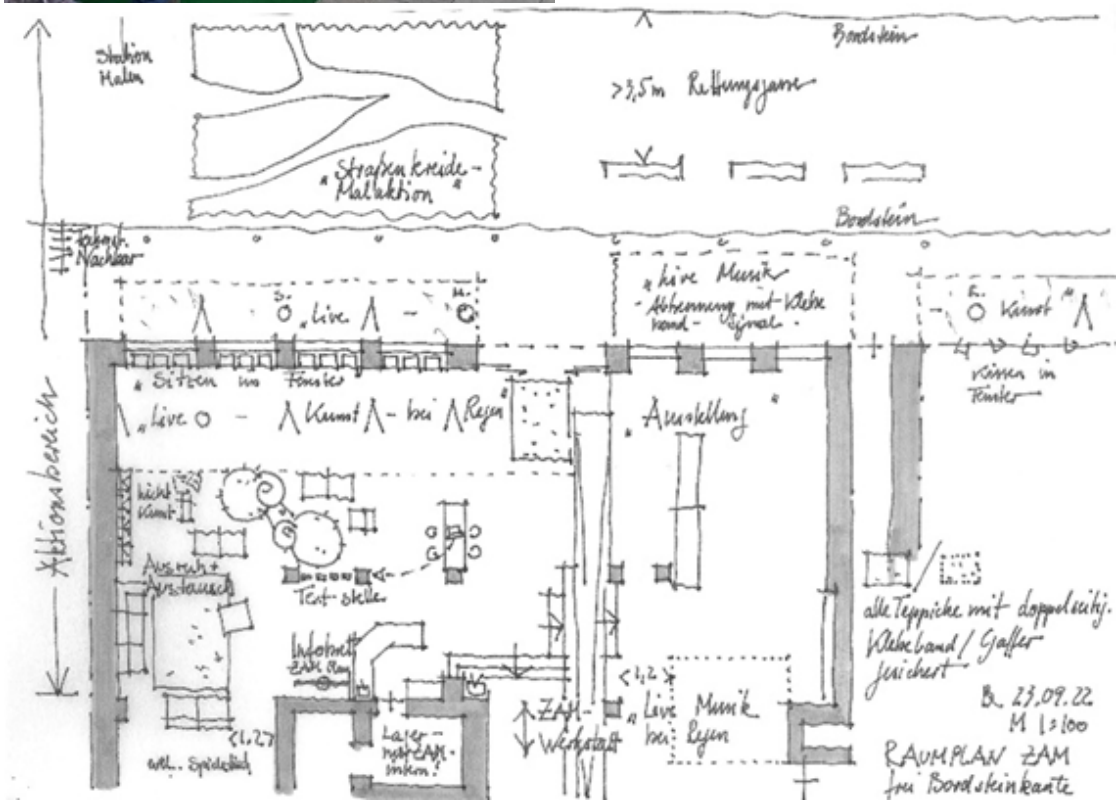 Station
Malen
Bordstein
>3,5m Rettungsgasse
"Straßenkreide-
Malaktion"
Bordstein
Nachbar
"Live Musik
- Abtrennung mit Klebe
band - Signal.
S.
M.
"Live -
S.
Kunst"
"Sitzen im Fenster"
Kissen in
Fenster
"Live - Kunst - bei Regen"
"Ausstellung"
Aktionsbereich
nicht
Kunst
Ausruh +
Austausch
Textsteller
Infobrett
ZAM Plan
<1,2>
alle Teppiche mit doppelseitig.
Klebeband / Gaffer
gesichert
<1,2>
evtl. Spieltisch
Lager
intern!
ZAM-
Werkstatt
"Live Musik
bei Regen
23.09.22
M 1:100
RAUMPLAN ZAM
frei Bordsteinkante